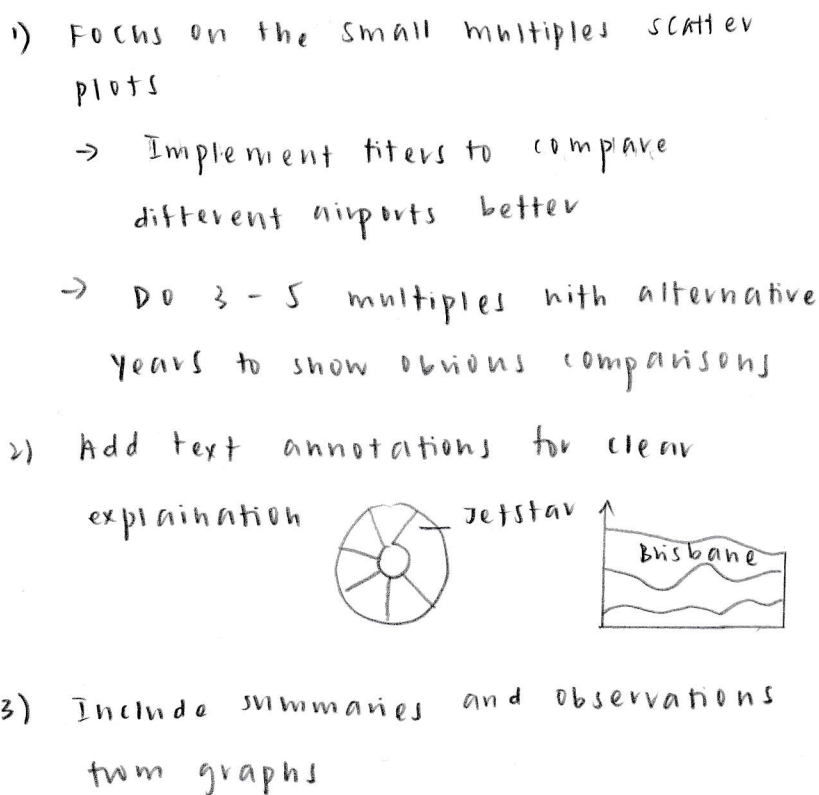 1) Focus on the small multiples scatter
plots
→ Implement filters to compare
different airports better
→ Do 3 - 5 multiples with alternative
years to show obvious comparisons
2) Add text annotations for clear
explaination
Jetstar
Brisbane
3) Include summaries and observations
from graphs